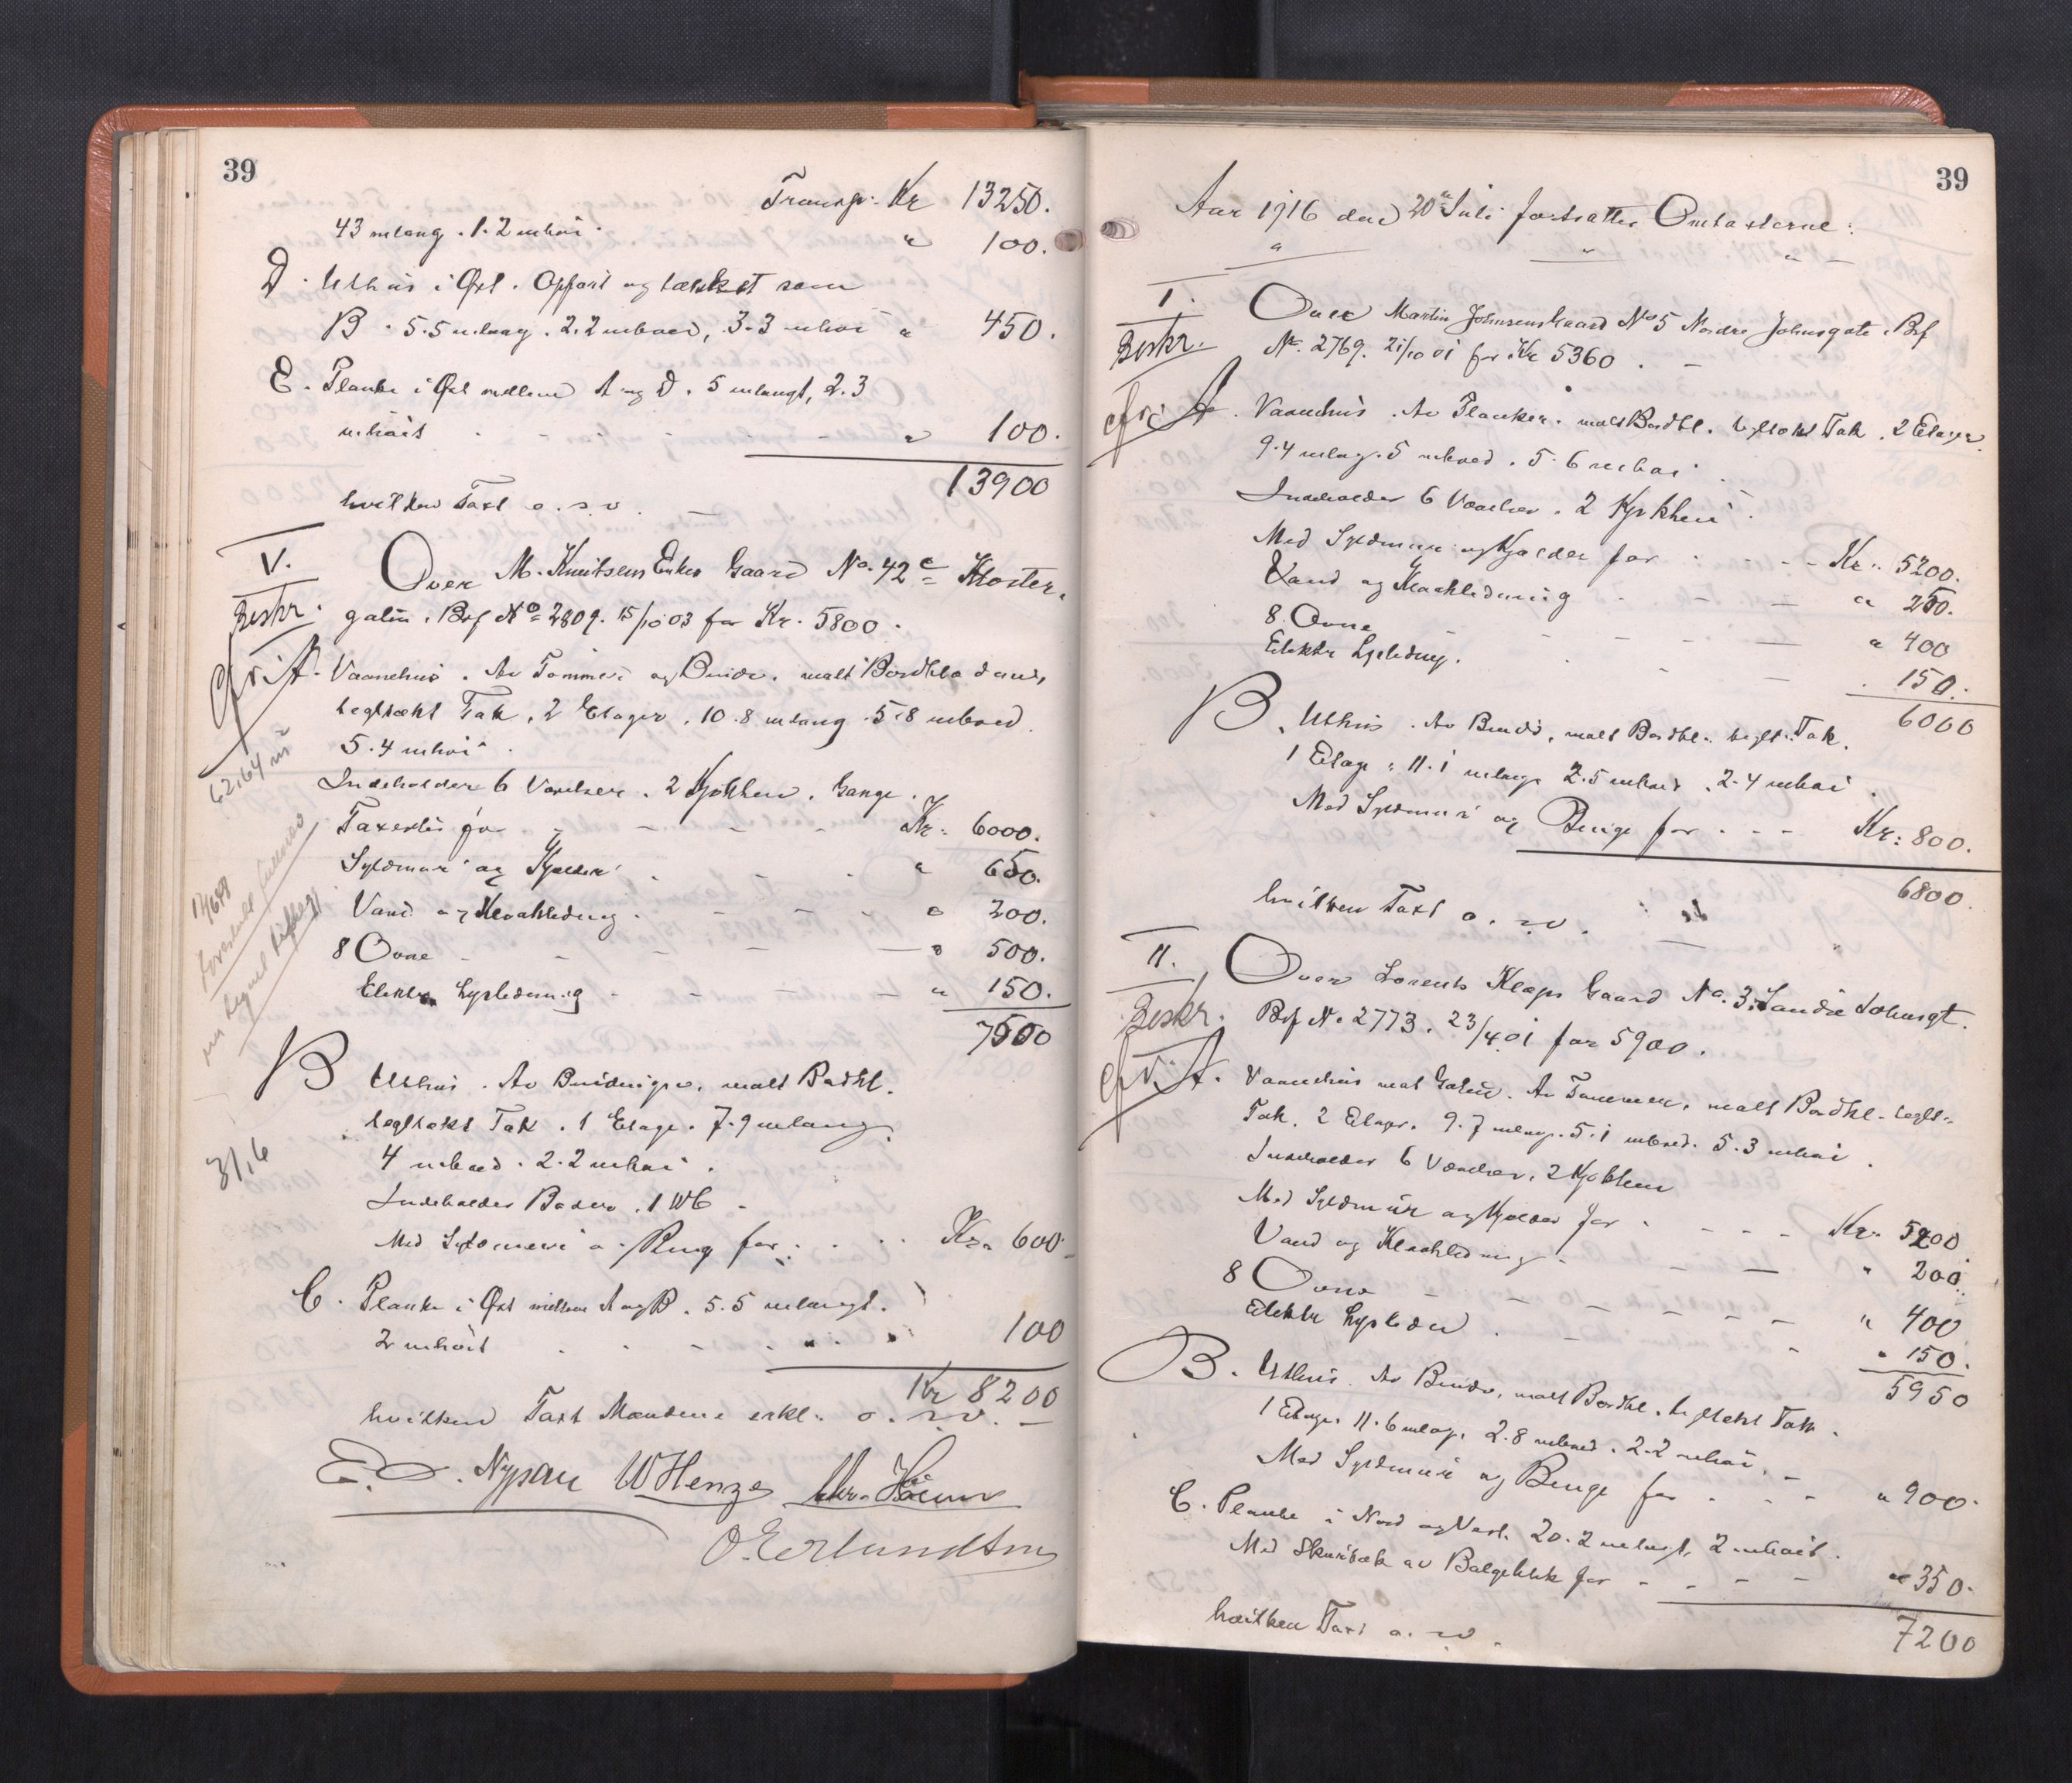 39
Transp: Kr 13250.
43 m lang. 1.2 m høi " 100.
D. Uthus i Øst. Opført og tækket som
B. 5.5 m lang. 2.2 m bred, 3.3 m høi " 450.
E. Planke i Øst mellem A og D. 5 m langt, 2.3
m høit - - - " 100.
13900
hvilken Taxt o. s. v. —
V. Over M. Knutsens Enkes Gaard No. 42c Kloster-
Beskr. gaten. Brf No 2809. 15/10 03 for Kr. 5800.
A. Vaanehus. Av Tømmer og Bindv. malt Bordklædning,
tegltækt Tak, 2 Etager, 10.8 m lang 5.8 m bred
5.4 m høi.
62.64 m²
Indeholder 6 Værelser. 2 Kjøkken. Gange.
Taxeres for - - - Kr. 6000.
Syldmur og Kjælder " 650.
Vand og Kloakledning " 200.
8 Ovne - - - " 500.
Elektr. Lysledning - - - " 150.
7500
B Uthus. Av Bindingsv. malt Bordkl.
tegltækt Tak. 1 Etage. 7.9 m lang.
4 m bred. 2.2 m høi.
31.6
Indeholder Boder. 1 WC -
Med Syldmur o. Ping for: Kr. 600
C. Planke i Øst mellem A og B. 5.5 m langt.
2 m høit 100
Kr 8200
hvilken Taxt Mændene erkl. o. s. v. —
E. D. Nypan W Henze Chr. Hoem
O. Erlundsen
39
Aar 1916 den 20de Juli fortsattes Omtaxterne:
I. Over Martin Johnsens Gaard No 5 Nordre Johnsgate. Brf
Beskr. No. 2769. 21/10 01 for Kr 5360. -
A. Vaanehus. Av Planker. malt Bordkl. tegltækt Tak. 2 Etager.
9.4 m lang. 5 m bred. 5.6 m høi.
Indeholder 6 Værelser. 2 Kjøkken.
Med Syldmur og Kjælder for - - - Kr. 5200.
Vand og Kloakledning " 250.
8 Ovne " 400
Elektr Lysledning. 150.
6000
B. Uthus. Av Bindv. malt Bordkl. teglt. Tak.
1 Etage. 11.1 m lang 2.5 m bred. 2.4 m høi.
Med Syldmur og Binge for - - - Kr: 800.
6800.
hvilken Taxt o. s. v.
II. Over Lorents Kleps Gaard No. 3. Søndre Johnsgt.
Beskr. Brf No 2773. 23/4 01 for 5900.
A. Vaanehus mot Gaten. Av Tømmer. malt Bordkl. teglt.
Tak. 2 Etager. 9.7 m lang. 5.1 m bred. 5.3 m høi.
Indeholder 6 Værelser, 2 Kjøkken
Med Syldmur og Kjælder for - - - Kr. 5200
Vand og Kloakledning " 200.
8 Ovne - - - " 400
Elektr Lysledn. " 150.
5950
B. Uthus. Av Bindv. malt Bordkl. tegltækt Tak.
1 Etage. 11.6 m lang. 2.8 m bred. 2.2 m høi. -
Med Syldmur og Binge for - - - " 900.
C. Planke i Nord og Vest. 20.2 m langt, 2 m høit.
Med Skurtak av Bølgeblik for - - - " 350.
7200
hvilken Taxt o. s. v.